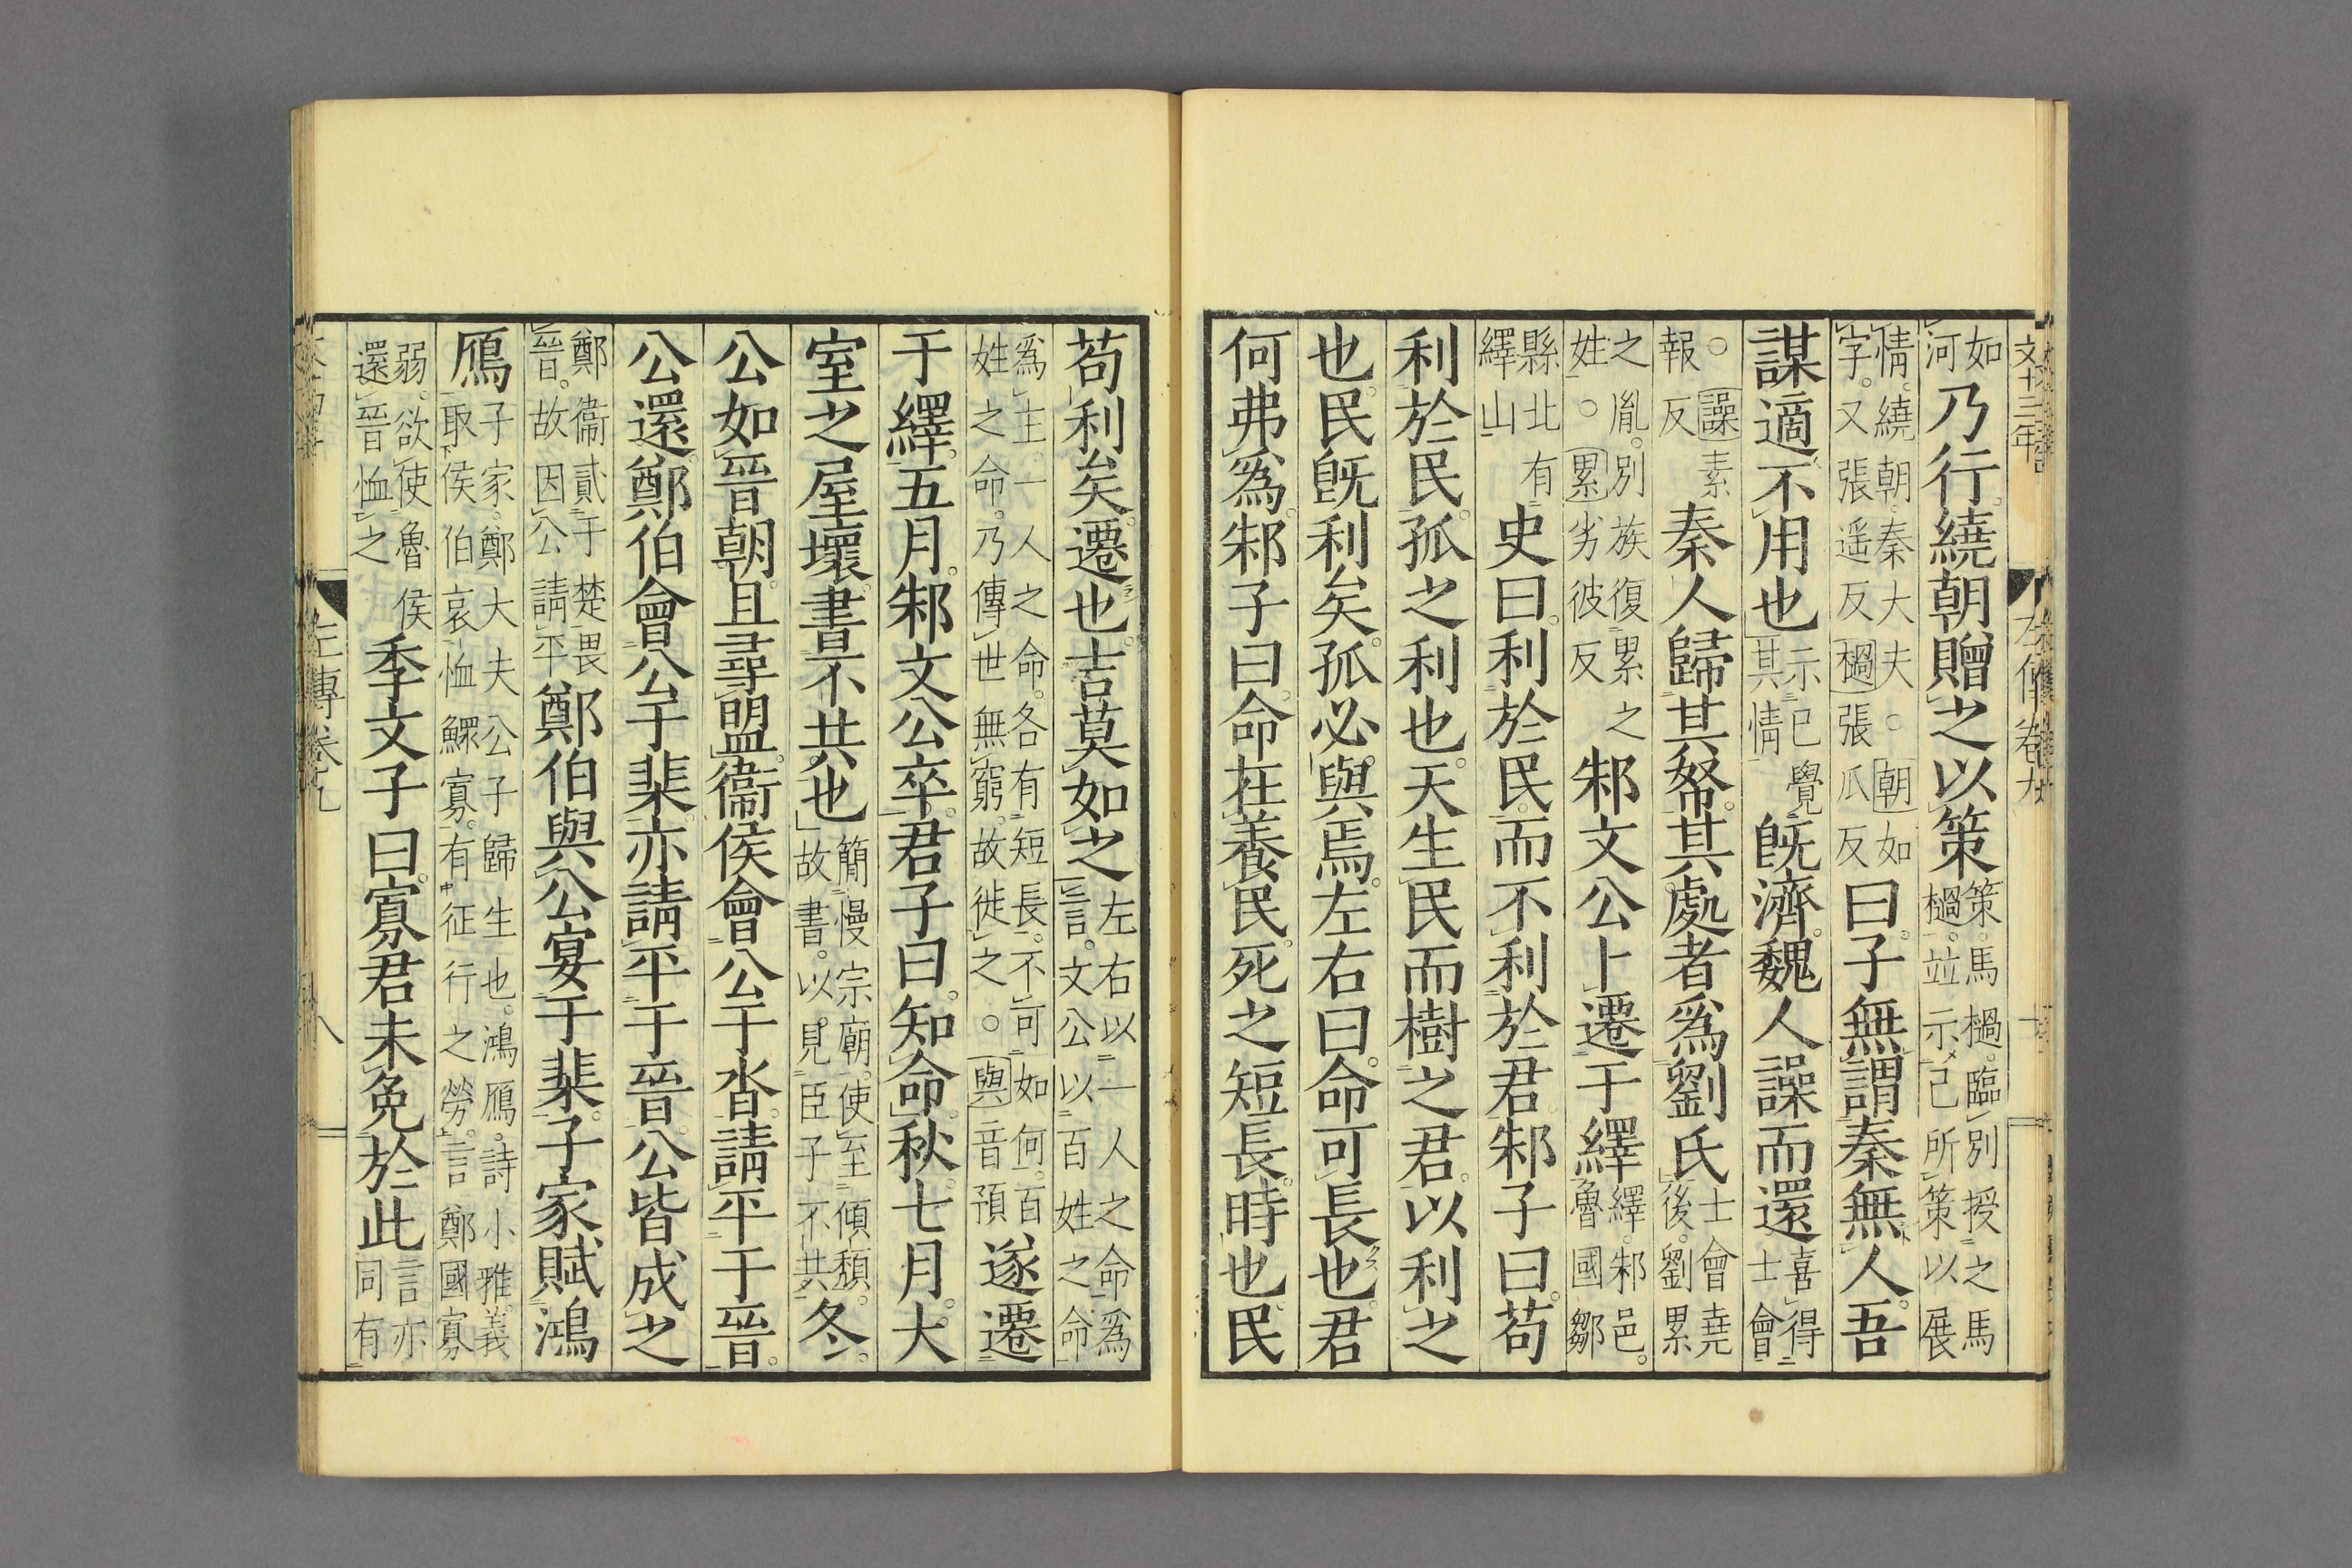 文十三年　左傳卷九
如河乃行繞朝贈之以策策馬檛臨別授之馬檛竝示己所策以展
情繞朝秦大夫○朝如字又張遥反檛張瓜反曰子無謂秦無人吾
謀適不用也示己覺其情旣濟魏人譟而還喜得士會
○譟素報反秦人歸其帑其處者爲劉氏士會堯後劉累
之胤別族復累之姓○累劣彼反邾文公卜遷于繹繹邾邑魯國鄒
縣北有繹山史曰利於民而不利於君邾子曰苟
利於民孤之利也天生民而樹之君以利之
也民旣利矣孤必與焉左右曰命可長也君
何弗爲邾子曰命在養民死之短長時也民
苟利矣遷也吉莫如之左右以一人之命爲言文公以百姓之命
爲主一人之命各有短長不可如何百姓之命乃傳世無窮故徙之○與音預遂遷
于繹五月邾文公卒君子曰知命秋七月大
室之屋壞書不共也簡慢宗廟使至傾頹故書以見臣子不共冬
公如晉朝且尋盟衞侯會公于沓請平于晉
公還鄭伯會公于棐亦請平于晉公皆成之
鄭衞貳于楚畏晉故因公請平鄭伯與公宴于棐子家賦鴻
鴈子家鄭大夫公子歸生也鴻鴈詩小雅義取侯伯哀恤鰥寡有征行之勞言鄭國寡
弱欲使魯侯還晉恤之季文子曰寡君未免於此言亦同有
左傳卷九　八